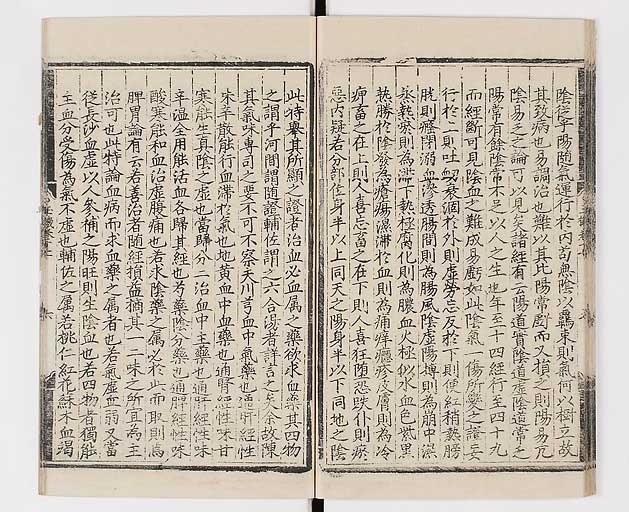 陰從乎陽隨氣運行於內苟無陰以羈束則氣何以樹立故
其致病也易調治也難以其比陽常虧而又損之則陽易亢
陰易乏之論可以見矣諸經有云陽道實陰道虛陰道常乏
陽常有餘陰常不足以人之生也年至十四經行至四十九
而經斷可見陰血之難成易虧如此陰氣一傷所變之證妄
行於上則吐衄衰涸於外則虛勞忘反於下則便紅稍熱膀
胱則癃閉溺血滲透腸間則為腸風陰虛陽搏則為崩中濕
蒸熱瘀則為滯下熱極腐化則為膿血火極似水血色紫黑
熱勝於陰發為瘡瘍濕滯於血則為痛痒癮疹皮膚則為冷
痹畜之在上則人喜忘畜之在下則人喜狂墮恐跌仆則瘀
惡內凝若分部位身半以上同天之陽身半以下同地之陰
此特舉其所顯之證者治血必血屬之藥欲求血藥其四物
之謂乎河間謂隨證輔佐謂之六合湯者詳言之矣余故陳
其氣味專司之要不可不察夫川芎血中氣藥也通肝經性
味辛散能行血滯於氣也地黃血中血藥也通腎經性味甘
寒能生真陰之虛也當歸分二治血中主藥也通肝經性味
辛溫全用能活血各歸其經也芍藥陰分藥也通脾經性味
酸寒能和血治虛腹痛也若求陰藥之屬必於此而取則焉
脾胃論有云若善治者隨經損益摘其一二味之所宜為主
治可也此特論血病而求血藥之屬者也若氣虛血弱又當
從長沙血虛以人參補之陽旺則生陰血也若四物者獨能
主血分受傷為氣不虛也輔佐之屬若桃仁紅花蘇木血竭